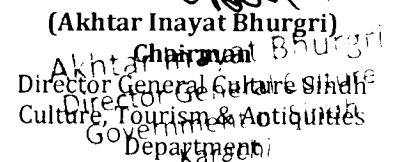 (Akhtar Inayat Bhurgri)
Chairman
Director General Culture Sindh
Culture, Tourism & Antiquities
Department
Akhtar Inayat Bhurgri
Director General Culture
Government of Sindh
Karachi